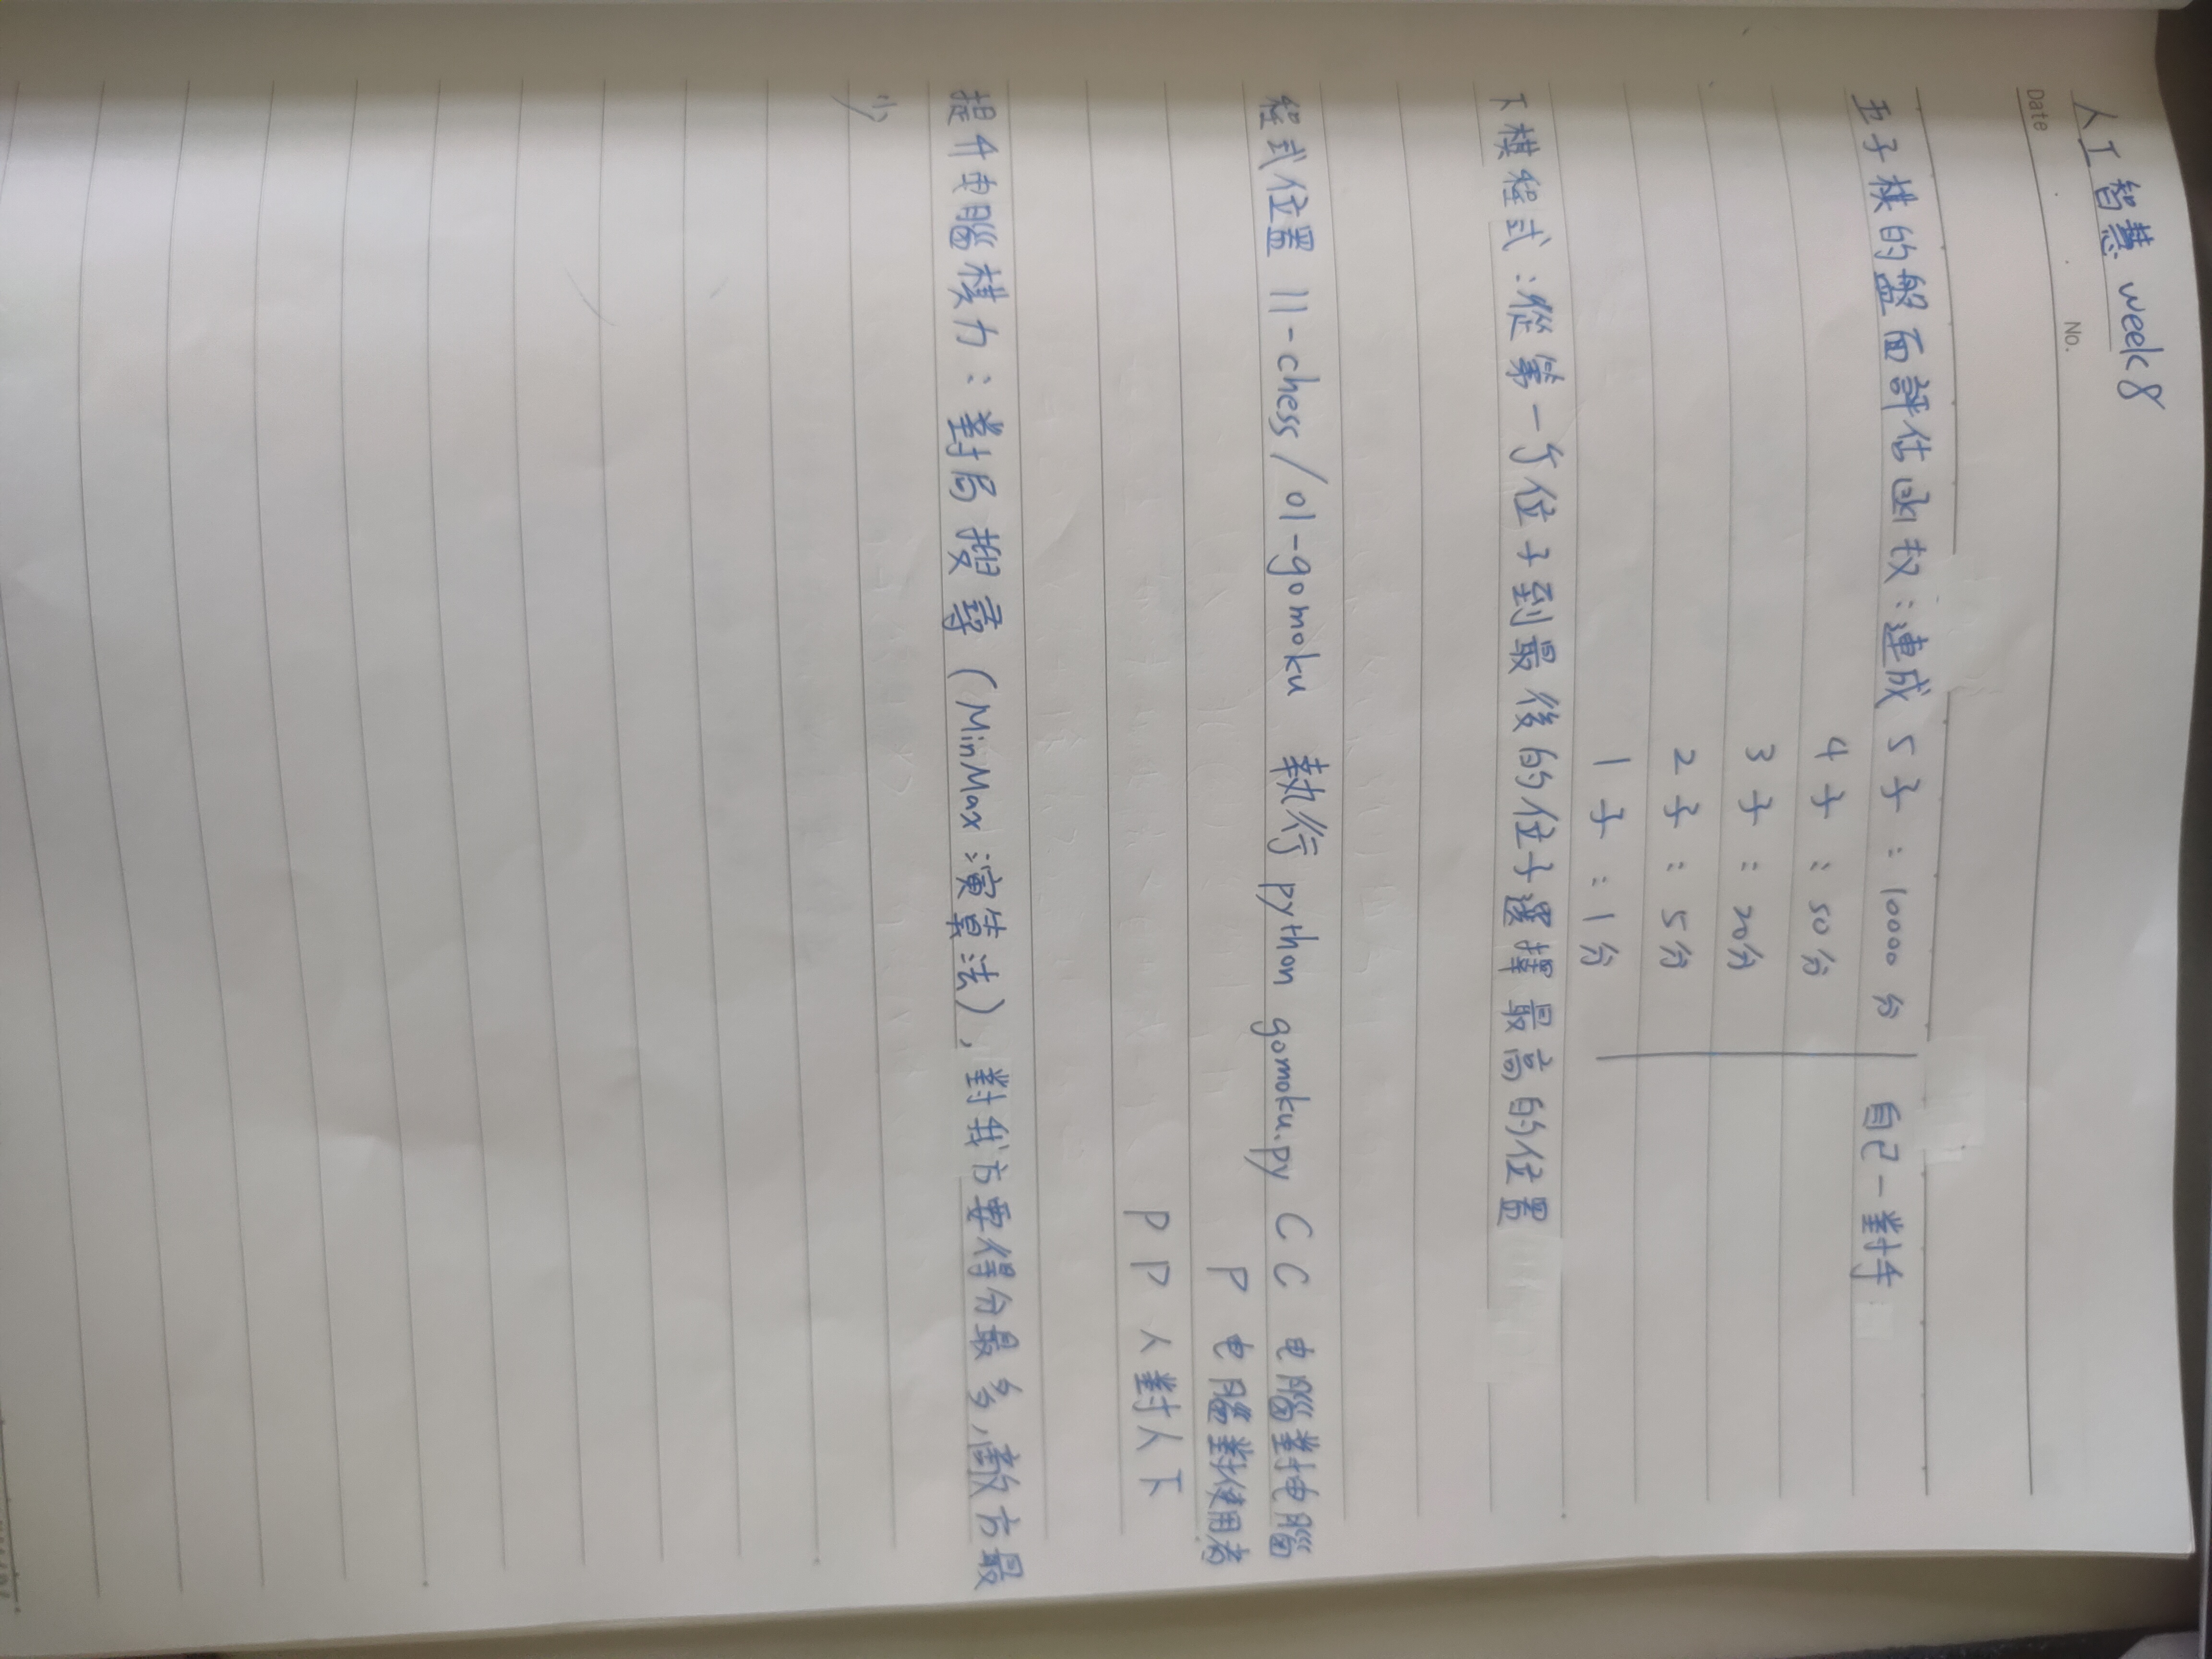 人工智慧 week8
No.
Date
五子棋的盤面評估函权：連成 5子：10000分 自己－對手
4子：50分
3子：20分
2子：5分
1子：1分
下棋程式：從第一个位子到最後的位子選擇最高的位置
程式位置 11-chess/01-gomoku 執行 python gomoku.py C C 电腦對电腦
P 电腦對使用者
P P 人對人下
提升电腦棋力：對局搜尋（MinMax演算法），對我方要得分最多，敵方最
少